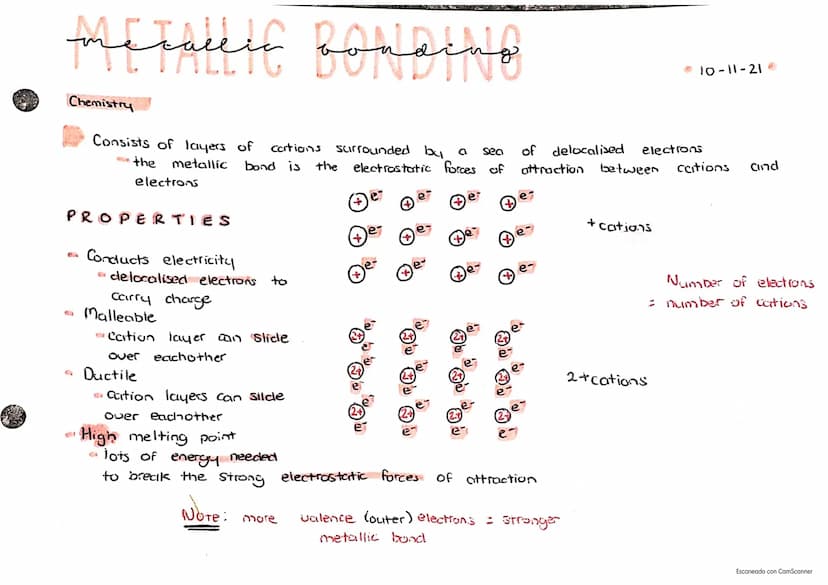 METALLIC BONDING
metallic bonding
10-11-21
Chemistry
Consists of layers of cations surrounded by a sea of delocalised electrons
the metallic bond is the electrostatic forces of attraction between cations and
electrons
PROPERTIES
Conducts electricity
delocalised electrons to
carry charge
Malleable
cation layer can slide
over eachother
Ductile
cation layers can slide
over eachother
High melting point
lots of energy needed
to break the strong electrostatic forces of attraction
+ e- + e- + e- + e-
+ e- + e- + e- + e-
+ e- + e- + e- + e-
+cations
Number of electrons
= number of cations
e- e- e- e-
2+ 2+ 2+ 2+
e- e- e- e-
e- e- e- e-
2+ 2+ 2+ 2+
e- e- e- e-
e- e- e- e-
2+ 2+ 2+ 2+
e- e- e- e-
2+cations
Note: more valence (outer) electrons = stronger
metallic bond
Escaneado con CamScanner